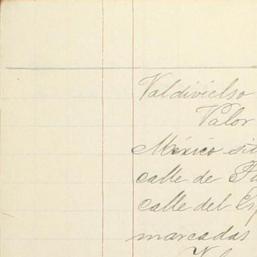 Valdivielso
Valor
México sit
calle de
calle del Es
marcadas